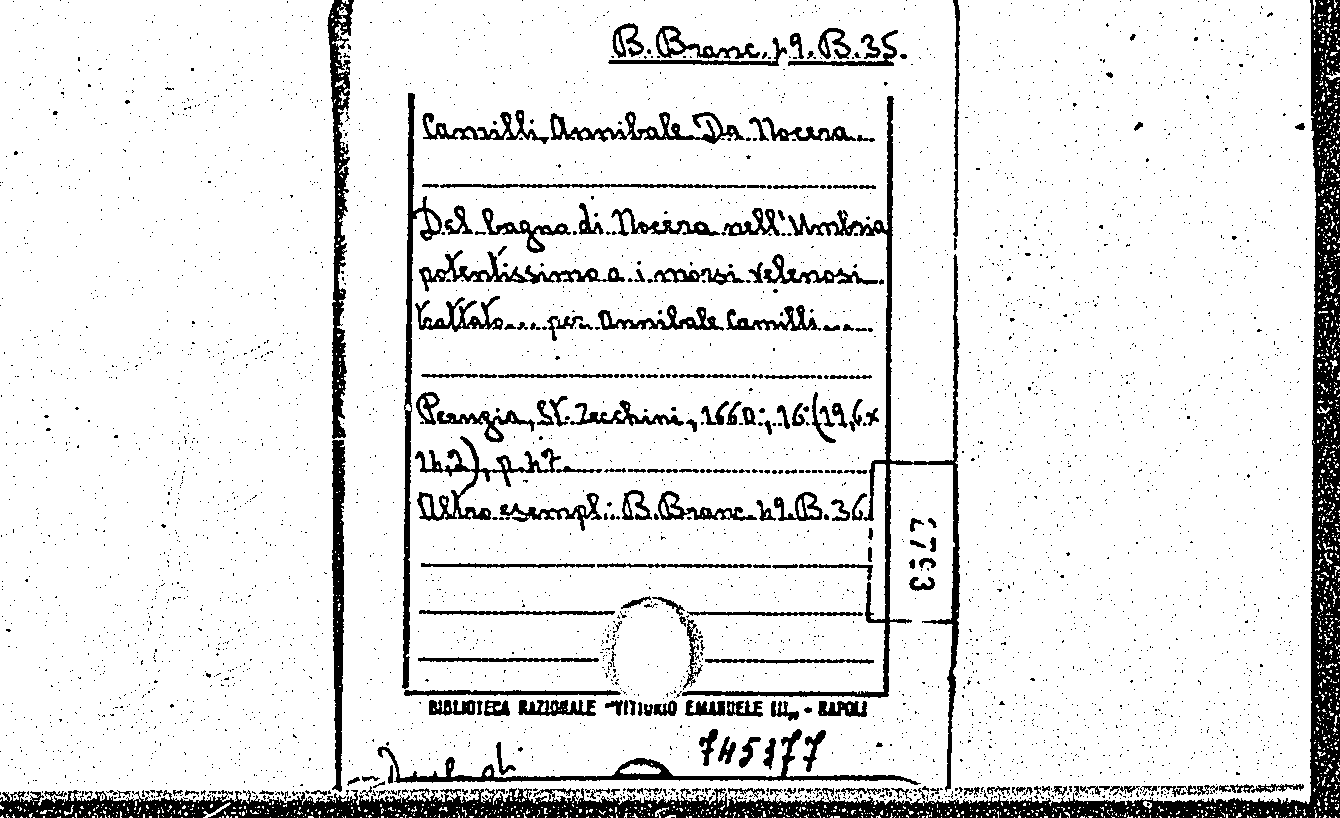 B. Branc. 49. B. 35.
Camilli, Annibale Da Nocera
Del bagno di Nocera nell'Umbria
potentissimo a i morsi velenosi
trattato... per Annibale Camilli....
Perugia, St. Zecchini, 1660; 16° (19,6x
14,2), p. 47.
Altro esempl.: B. Branc. 49. B. 36
2793
BIBLIOTECA NAZIONALE "VITTORIO EMANUELE III„ - NAPOLI
745377